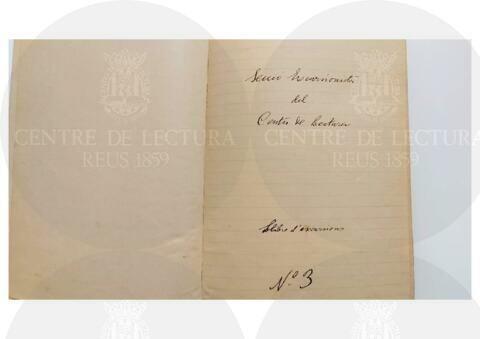 Secció Excursionista
del
Centre de Lectura
Llibre d'excursions
Nº 3
CENTRE DE LECTURA
REUS 1859
CENTRE DE LECTURA
REUS 1859